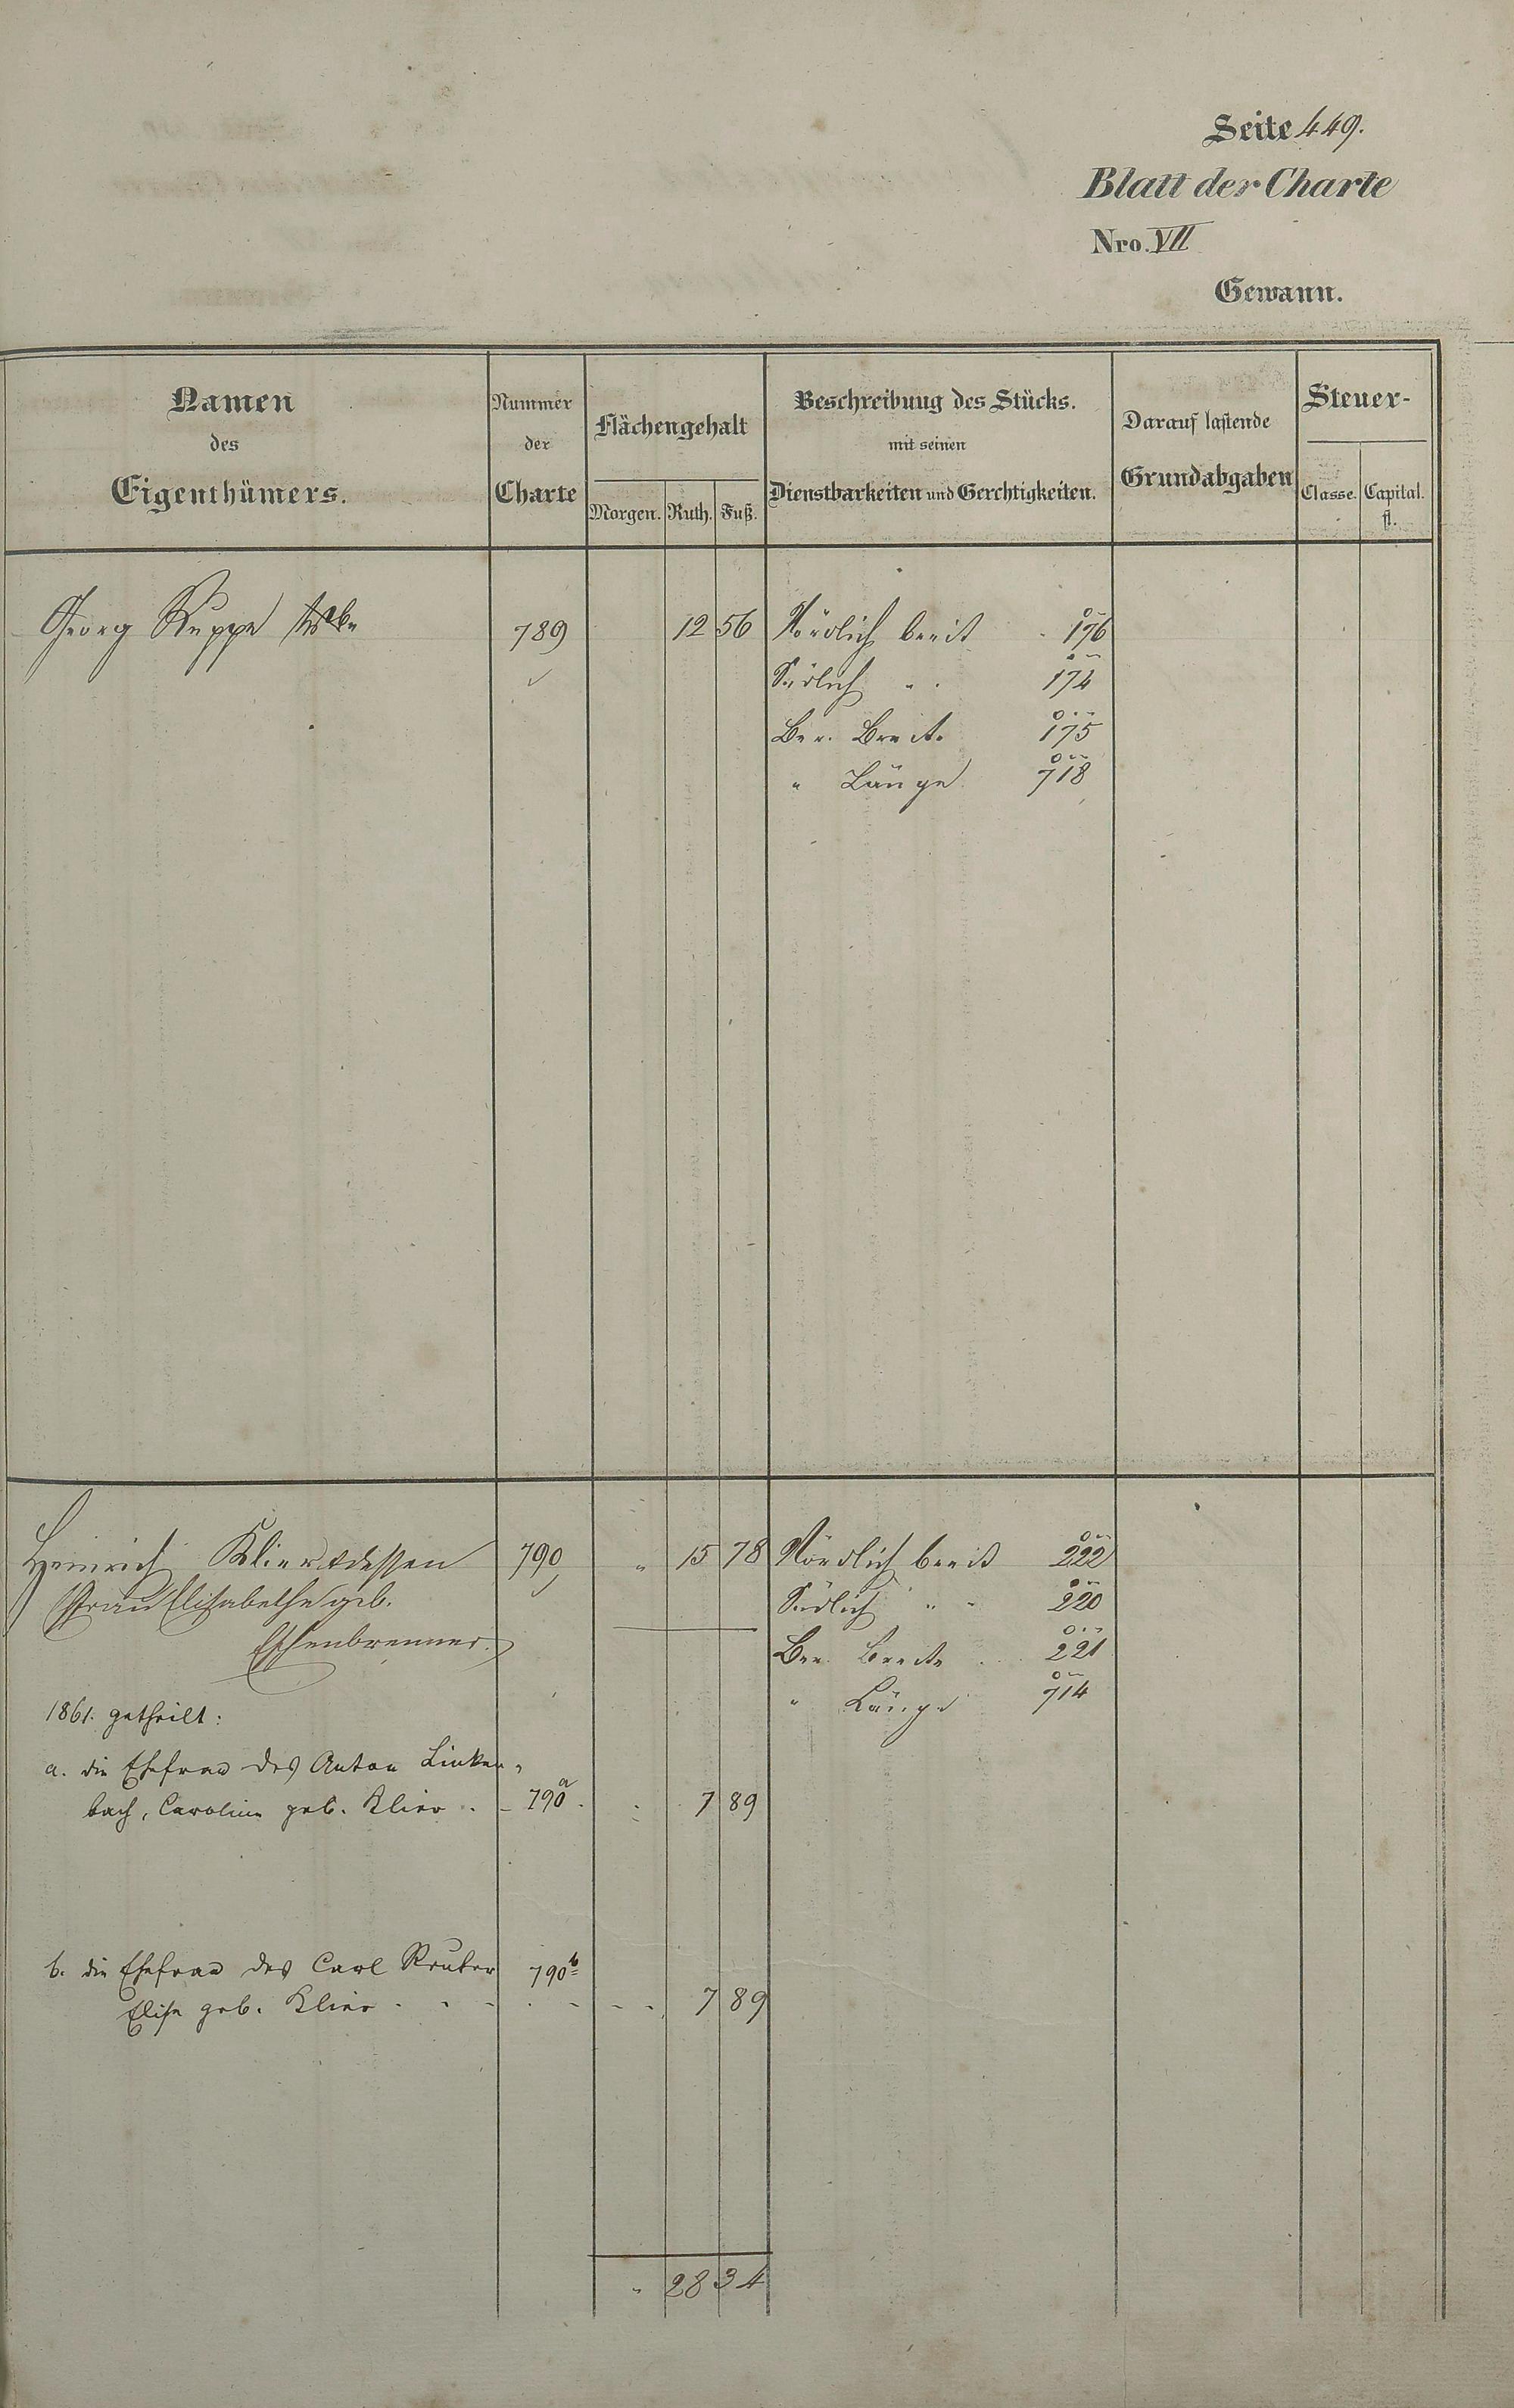 Seite 449.
Blatt der Charte
Nro. VII
Gewann.
Namen
des
Eigenthümers.
Nummer
der
Charte
Flächengehalt
Morgen. Ruth. Fuß.
Beschreibung des Stücks.
mit seinen
Dienstbarkeiten und Gerchtigkeiten.
Darauf lastende
Grundabgaben
Steuer-
Classe. Capital.
fl.
Georg Ruppe 789 12 56 Nördlich breit 176
Südlich " " 174
Ber. Breite 175
" Länge 718
Heinrich Klier & dessen 790 " 15 78 Nördlich breit 222
Frau Elisabethe geb. Südlich " " 220
Eschenbrenner. Ber. Breite 221
" Länge 714
1861. getheilt:
a. die Ehefrau des Anton Linken-
bach, Caroline geb. Klier 790a 7 89
b. die Ehefrau des Carl Reuter 790b
Elise geb. Klier 7 89
" 28 34